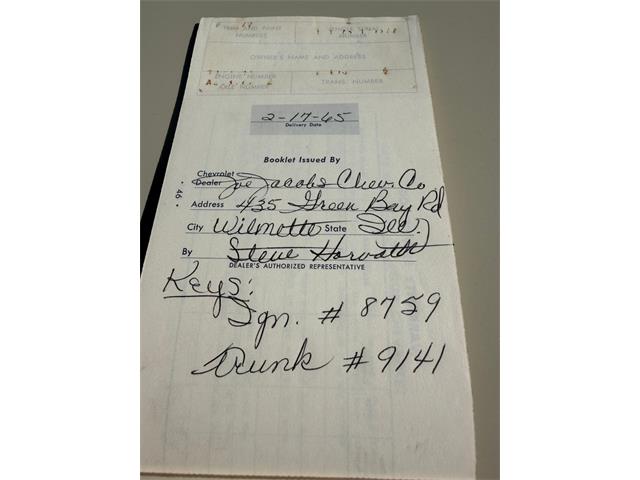 TRIM AND PAINT
NUMBERS
NUMBER
OWNER'S NAME AND ADDRESS
ENGINE NUMBER
TRANS. NUMBER
AXLE NUMBER
2-17-65
Delivery Date
Booklet Issued By
Chevrolet
Dealer Joe Jacobs Chev. Co
Address 435 Green Bay Rd
City Wilmette State Ill.
By Steve Horvath
DEALER'S AUTHORIZED REPRESENTATIVE
• 46 •
Keys:
Ign. # 8759
Trunk # 9141